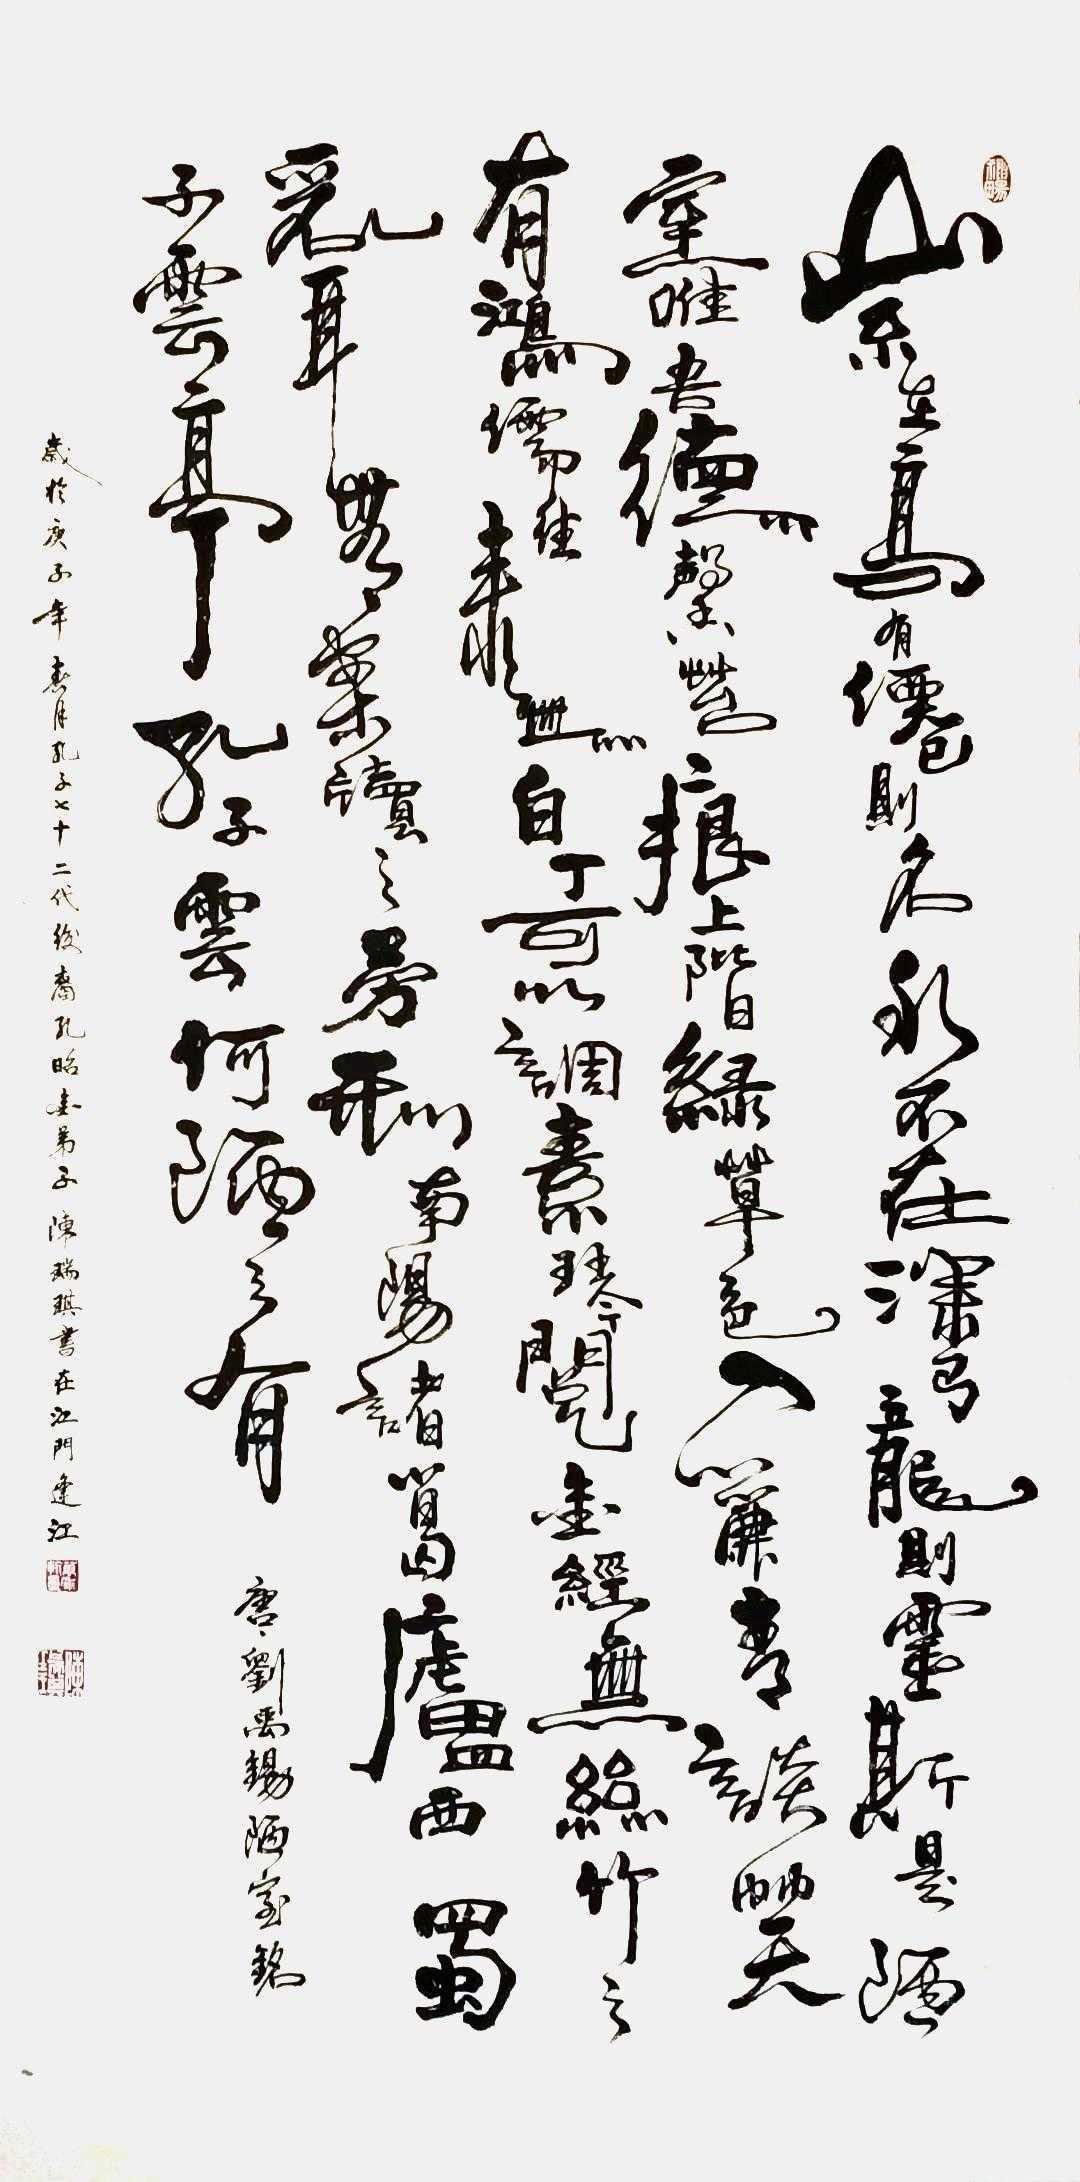 山不在高有僊則名水不在深有龍則靈斯是陋
室唯吾德馨苔痕上階綠草色入簾青談笑
有鴻儒往來無白丁可以調素琴閱金經無絲竹之
亂耳無案牘之勞形南陽諸葛廬西蜀
子雲亭孔子雲何陋之有
唐劉禹錫陋室銘
歲於庚子年春月孔子七十二代後裔孔昭弟子陳瑞琪書在江門逢江